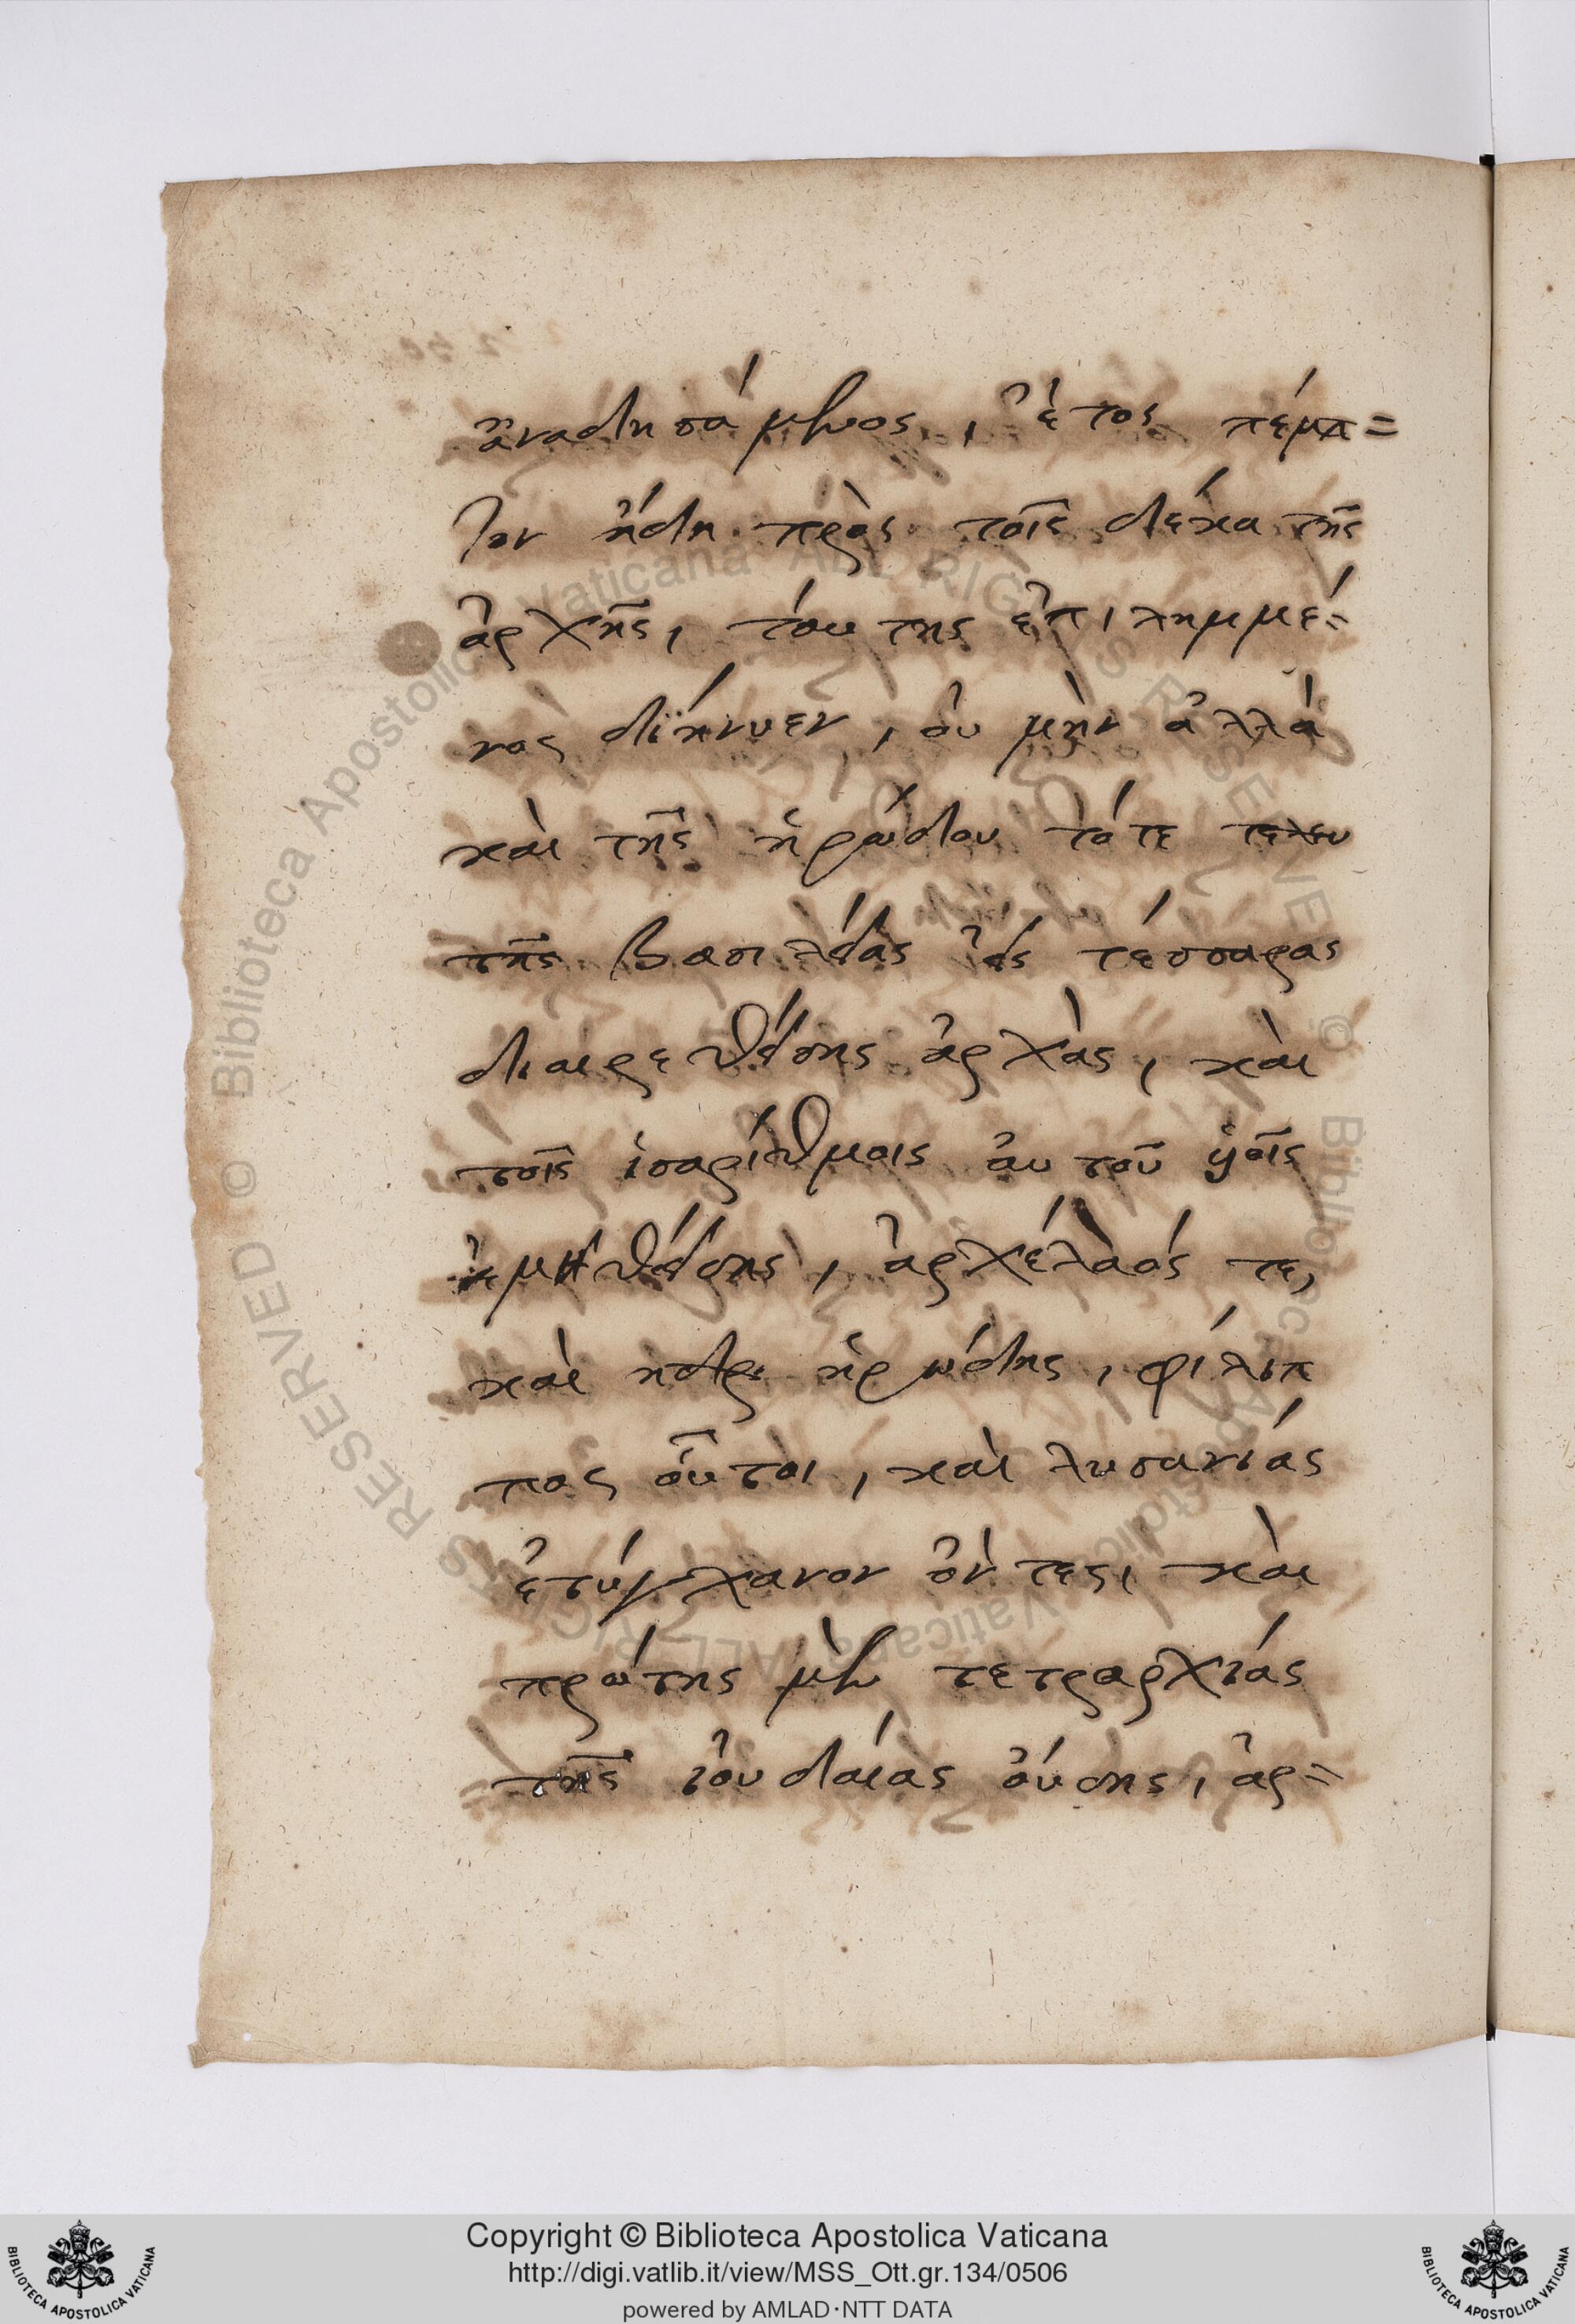 ἀναδησάμενος, ἔτος πέμπ=
τον ἤδη πρὸς τοῖς δέκα τῆς
ἀρχῆς, τόυτης ἐπιλημμέ=
νος διήνυεν, ὀυ μὴν ἀλλὰ
καὶ τῆς ἡρώδου τότε
τῆς βασιλείας εἰς τέσσαρας
διαιρεθείσης ἀρχὰς, καὶ
τοῖς ἰσαρίθμοις ἀυτοῦ ὑοῖς
ἀρχέλαός τε,
καὶ ἡρώδης, φίλιπ
πος ὁῦτοι, καὶ λυσανίας
ἐτύγχανον ὄντες, καὶ
πρώτης μὲν τετραρχίας
τῆς ἰουδαίας ὀύσης, ἀρ=
Copyright © Biblioteca Apostolica Vaticana
http://digi.vatlib.it/view/MSS_Ott.gr.134/0506
powered by AMLAD·NTT DATA
BIBLIOTECA APOSTOLICA VATICANA
BIBLIOTECA APOSTOLICA VATICANA